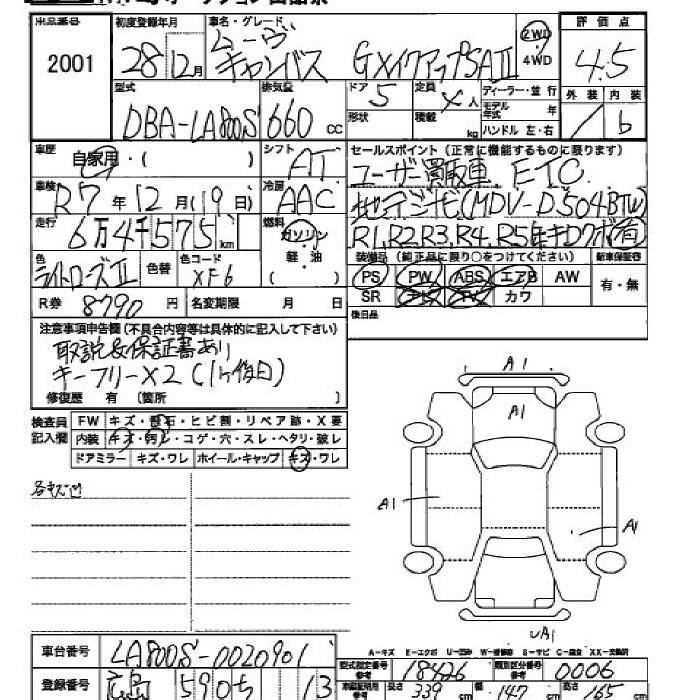 出品番号 初度登録年月 車名・グレード 評価点
2001 28年12月 ムーヴキャンバス GXメイクアップSAⅡ 2WD 4WD 4.5
型式 排気量 ドア 5 定員 人 ディーラー・並行 外装 内装
DBA-LA800S 660 cc 形状 積載 kg モデル年式 年 b
ハンドル 左・右
車歴 自家用・( ) シフト AT セールスポイント(正常に機能するものに限ります)
車検 R7年12月(19日) 冷房 AAC ユーザー買取車 ETC
走行 6万4千575km 燃料 ガソリン 軽・油 地デジナビ(MDV-D504BTW)
R1,R2,R3,R4,R5年キロクボ有
色 ライトローズⅡ 色替 色コード XF6 装備品(純正品に限り○をつけてください) 新車保証書
PS PW ABS エアB AW 有・無
R券 8790円 名変期限 月 日 SR カワ
後日品
注意事項申告欄(不具合内容等は具体的に記入して下さい)
取説&保証書あり
キーフリー×2(1ケ後日)
修復歴 有 〔箇所 〕
検査員記入欄 FW キズ・飛石・ヒビ割・リペア跡・X要
内装 キズ・汚レ・コゲ・穴・スレ・ヘタリ・破レ
ドアミラー キズ・ワレ ホイール・キャップ キズ・ワレ
各キズ凹
A1
A1
A1
A1
UA1
A-キズ E-エクボ U-凹み W-補修跡 S-サビ C-腐食 XX-交換済
車台番号 LA800S-0020901 型式指定番号 参考 18426 類別区分番号 参考 0006
登録番号 広島 590 ち 13 車庫証明用 参考 長さ 339 cm 幅 147 cm 高さ 165 cm